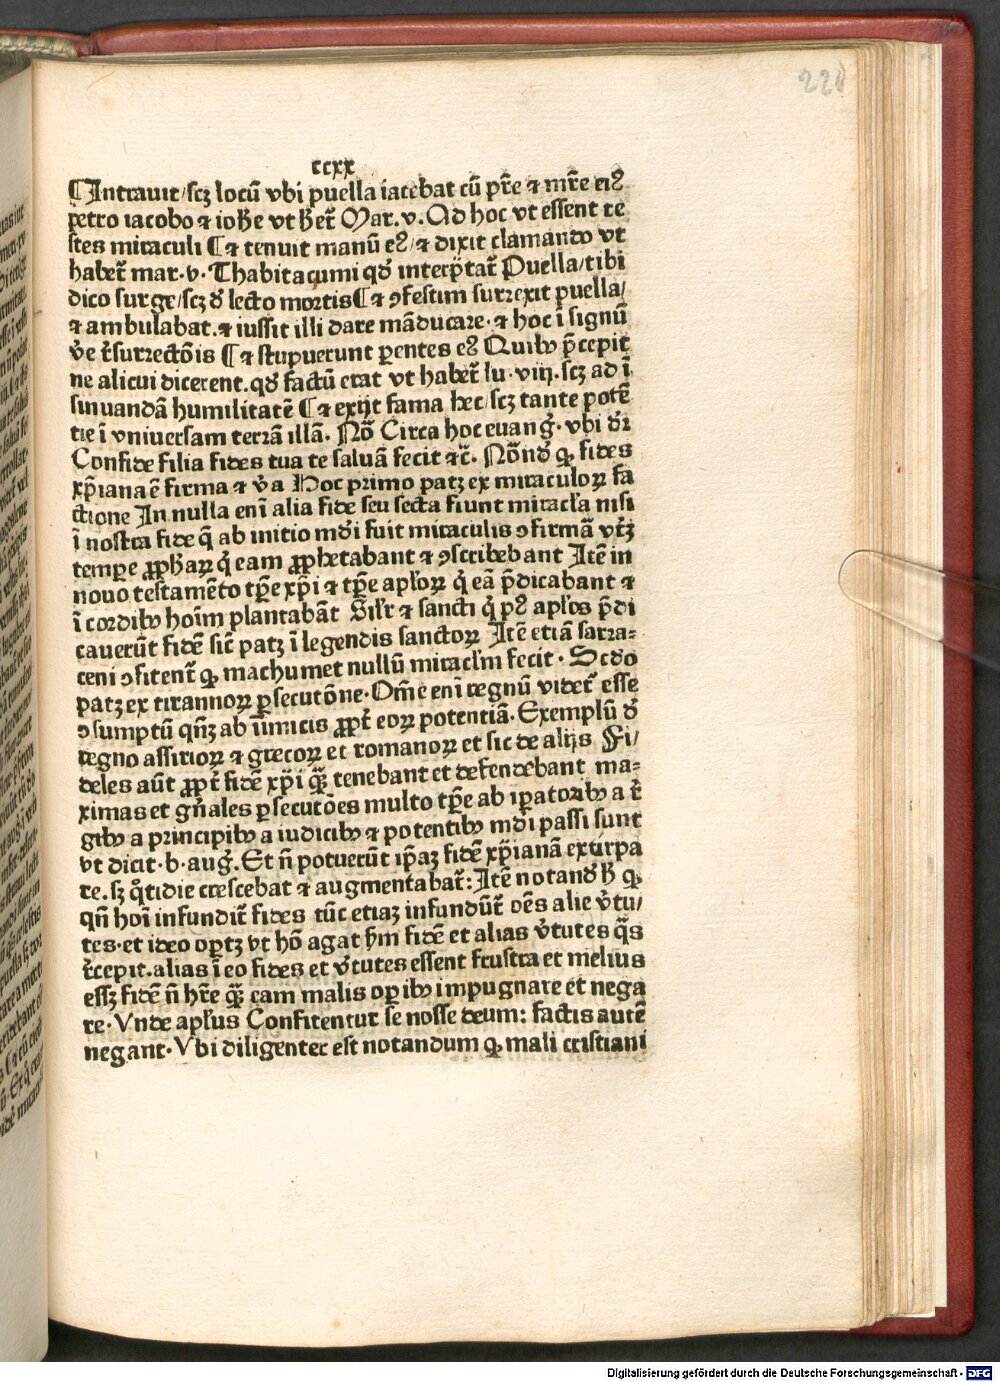 220
ccxx
¶Intrauit/scꝫ locū vbi puella iacebat cū pr̄e ⁊ mr̄e eiꝰ
petro iacobo ⁊ ioh̄e vt h̄et᷑ Mar.v. Ad hoc vt essent te
stes miraculi ¶⁊ tenuit manū eꝰ/⁊ dixit clamando vt
habet᷑ mar.v. Thabitacumi qd̓ interp̄tat᷑ Puella/tibi
dico surge/scꝫ d̓ lecto mortis¶⁊ ↄfestim surrexit puella/
⁊ ambulabat.⁊ iussit illi dare māducare.⁊ hoc ī signū
v̓e r̄surrectōis ¶⁊ stupuerunt ꝑentes eꝰ Quibꝰ p̄cepit
ne alicui dicerent.qd̓ factū erat vt habet᷑ lu.viij.scꝫ ad ī
sinuandā humilitatē ¶⁊ exijt fama hec/scꝫ tante potē
tie ī vniuersam terrā illā. Nō Circa hoc euang̓.vbi dr̄
Confide filia fides tua te saluā fecit ⁊c̄. Nōnd̓ ꝙ fides
xp̄iana ē firma ⁊ v̓a Hoc primo patꝫ ex miraculoꝝ fa
ctione In nulla enī alia fide seu secta fiunt miracl̓a nisi
ī nostra fide q̄ ab initio mūdi fuit miraculis ↄfirmā vtꝫ
tempe ꝓph̄aꝝ q̇ eam ꝓphetabant ⁊ ↄscribebant Itē in
nouo testamēto tp̄e xp̄i ⁊ tp̄e apl̓oꝝ q̇ eā p̄dicabant ⁊
ī cordibꝰ hoīm plantabāt Sil̓r ⁊ sancti q̇ pꝰ apl̓os p̄di
cauerūt fidē sic̄ patꝫ ī legendis sanctoꝝ Itē etiā sarra-
ceni ↄfitent᷑ ꝙ machumet nullū miracl̓m fecit. Scd̓o
patꝫ ex tirannoꝝ ꝑsecutōne. Om̄e enī regnū videt᷑ esse
ↄsumptū qn̄ꝫ ab inimicis ꝓpt̓ eoꝝ potentiā. Exemplū d̓
regno assirioꝝ ⁊ grecoꝝ et romanoꝝ et sic de alijs Fi/
deles aūt ꝓpt̓ fidē xp̄i quā tenebant et defendebant ma-
ximas et gn̄ales ꝑsecutōes multo tp̄e ab īꝑatoribꝰ a r̄
gibꝰ a principibꝰ a iudicibꝰ ⁊ potentibꝰ mūdi passi sunt
vt dicit.b.aug̓. Et n̄ potuerūt ip̄aꝫ fidē xp̄ianā extirpa
re.sꝫ q̇tidie crescebat ⁊ augmentabat᷑: Itē notand̓ h̄ ꝙ
qn̄ hoī infundit᷑ fides tūc etiaꝫ infundūt᷑ oēs alie v̓tu/
tes.et ideo oꝑtꝫ vt hō agat ẜm fidē et alias v̓tutes q̄s
r̄cepit.alias ī eo fides et v̓tutes essent frustra et melius
essꝫ fidē n̄ hr̄e quā eam malis oꝑibꝰ impugnare et nega
re. Vnde apl̓us Confitentur se nosse deum: factis autē
negant. Vbi diligenter est notandum ꝙ mali cristiani
Digitalisierung gefördert durch die Deutsche Forschungsgemeinschaft - DFG